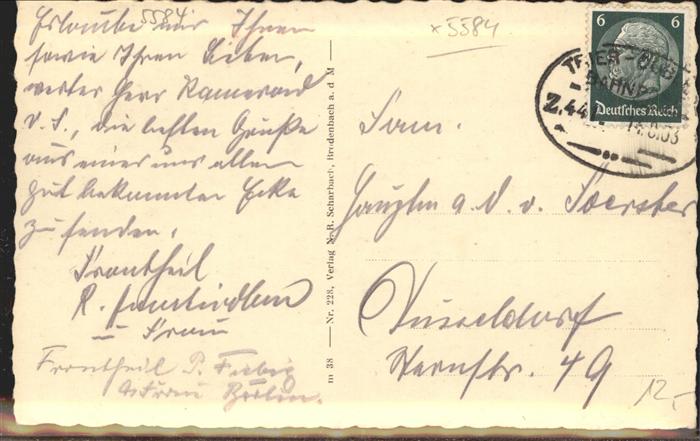 5584
Erlaube mir Ihnen
sowie Ihren Lieben,
werter Herr Kamerad
v. F., die besten Grüße
aus einer uns allen
gut bekannten Ecke
zu senden.
Frontheil
R.
u Frau
Frontheil P. Fiebig
u Frau Berlin.
m 38 — Nr. 228, Verlag N. R. Scharbach, Brodenbach a. d M —
x 5584
6 6
Deutsches Reich
TRIER -
BAHNP
Z.44
Herrn
Hauptm a. D. v. Foerster
Düsseldorf
Sternstr. 49
12,-